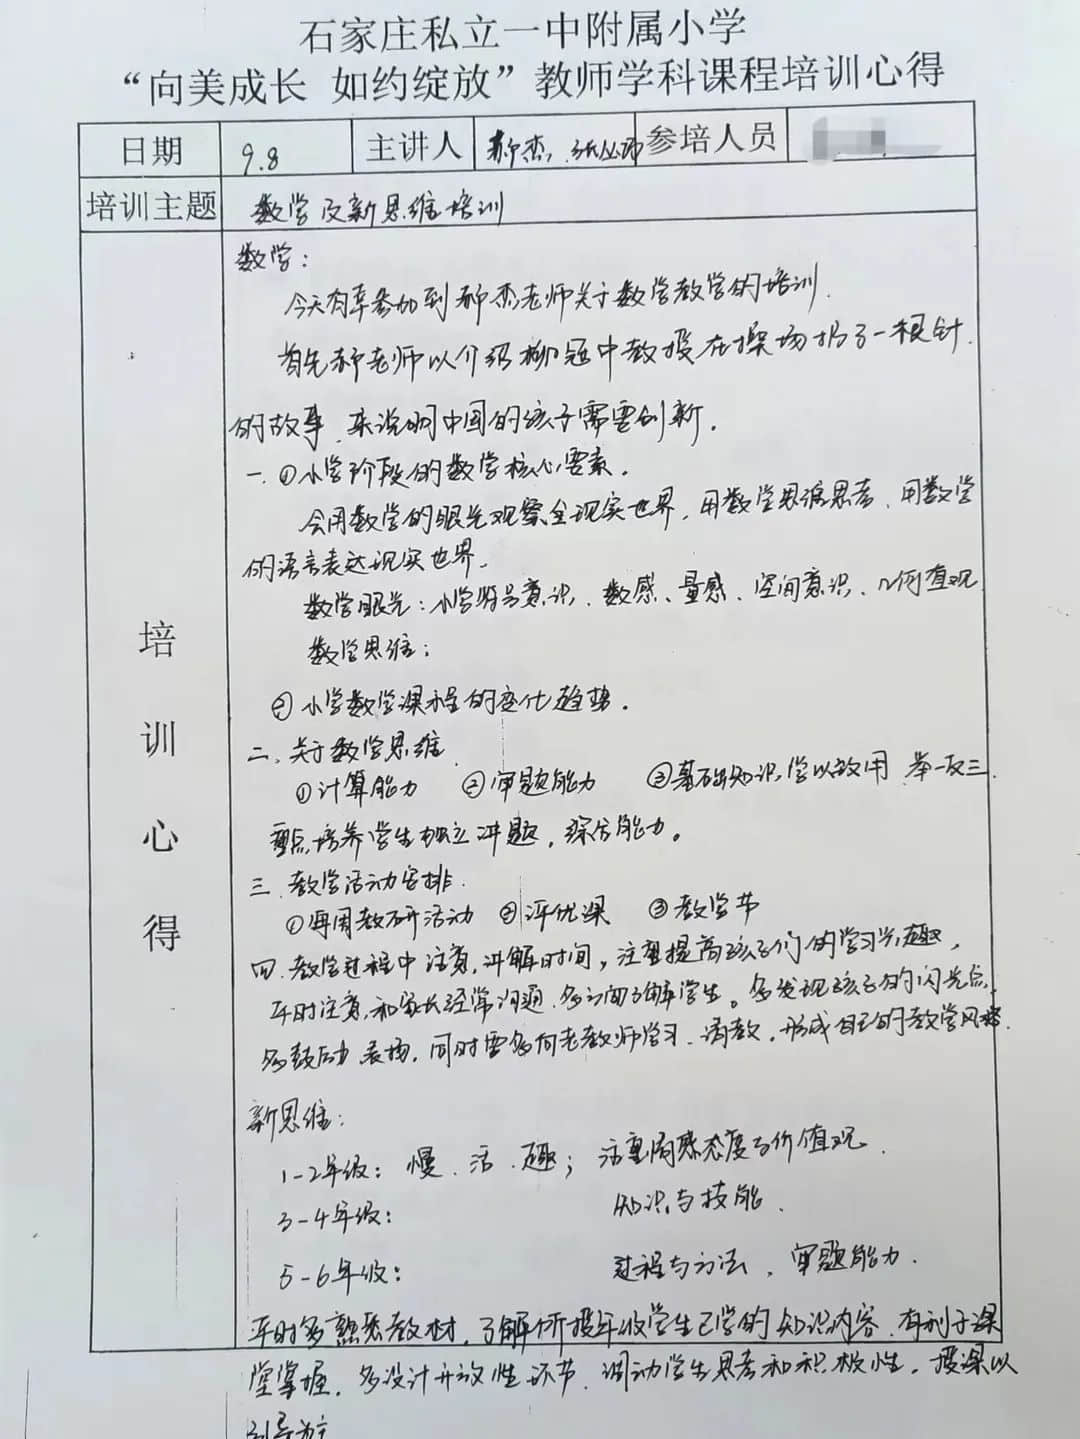 石家庄私立一中附属小学
“向美成长 如约绽放”教师学科课程培训心得
日期 9.8 主讲人 郝杰、张丛 参培人员
培训主题 数学及新思维培训
培训心得
数学：
今天有幸参加到郝杰老师关于数学教学的培训.
首先郝老师以介绍 中教授在操场扔了一根针
的故事.来说明中国的孩子需要创新.
一.①小学阶段的数学核心要素.
会用数学的眼光观察全现实世界,用数学思维思考、用数学
的语言表达现实世界.
数学眼光：小学符号意识、数感、量感、空间意识、几何直观
数学思维：
②小学数学课程的变化趋势.
二、关于数学思维
①计算能力 ②审题能力 ③基础知识、学以致用 举一反三.
重点培养学生独立讲题,综合能力。
三.教学活动安排.
①每周教研活动 ②评优课 ③数学节
四.教学过程中注意,讲解时间,注重提高孩子们的学习兴趣,
平时注意,和家长经常沟通.多方面了解学生。多发现孩子的闪光点.
多鼓励表扬,同时要多向老教师学习.请教.形成自己的教学风格.
新思维：
1-2年级：慢.活.趣；注重情感态度与价值观.
3-4年级： 知识与技能.
5-6年级： 过程与方法,审题能力.
平时多熟悉教材,了解所授年级学生已学的知识内容.有利于课
堂掌握.多设计开放性环节.调动学生思考和积极性.授课以
引导为主